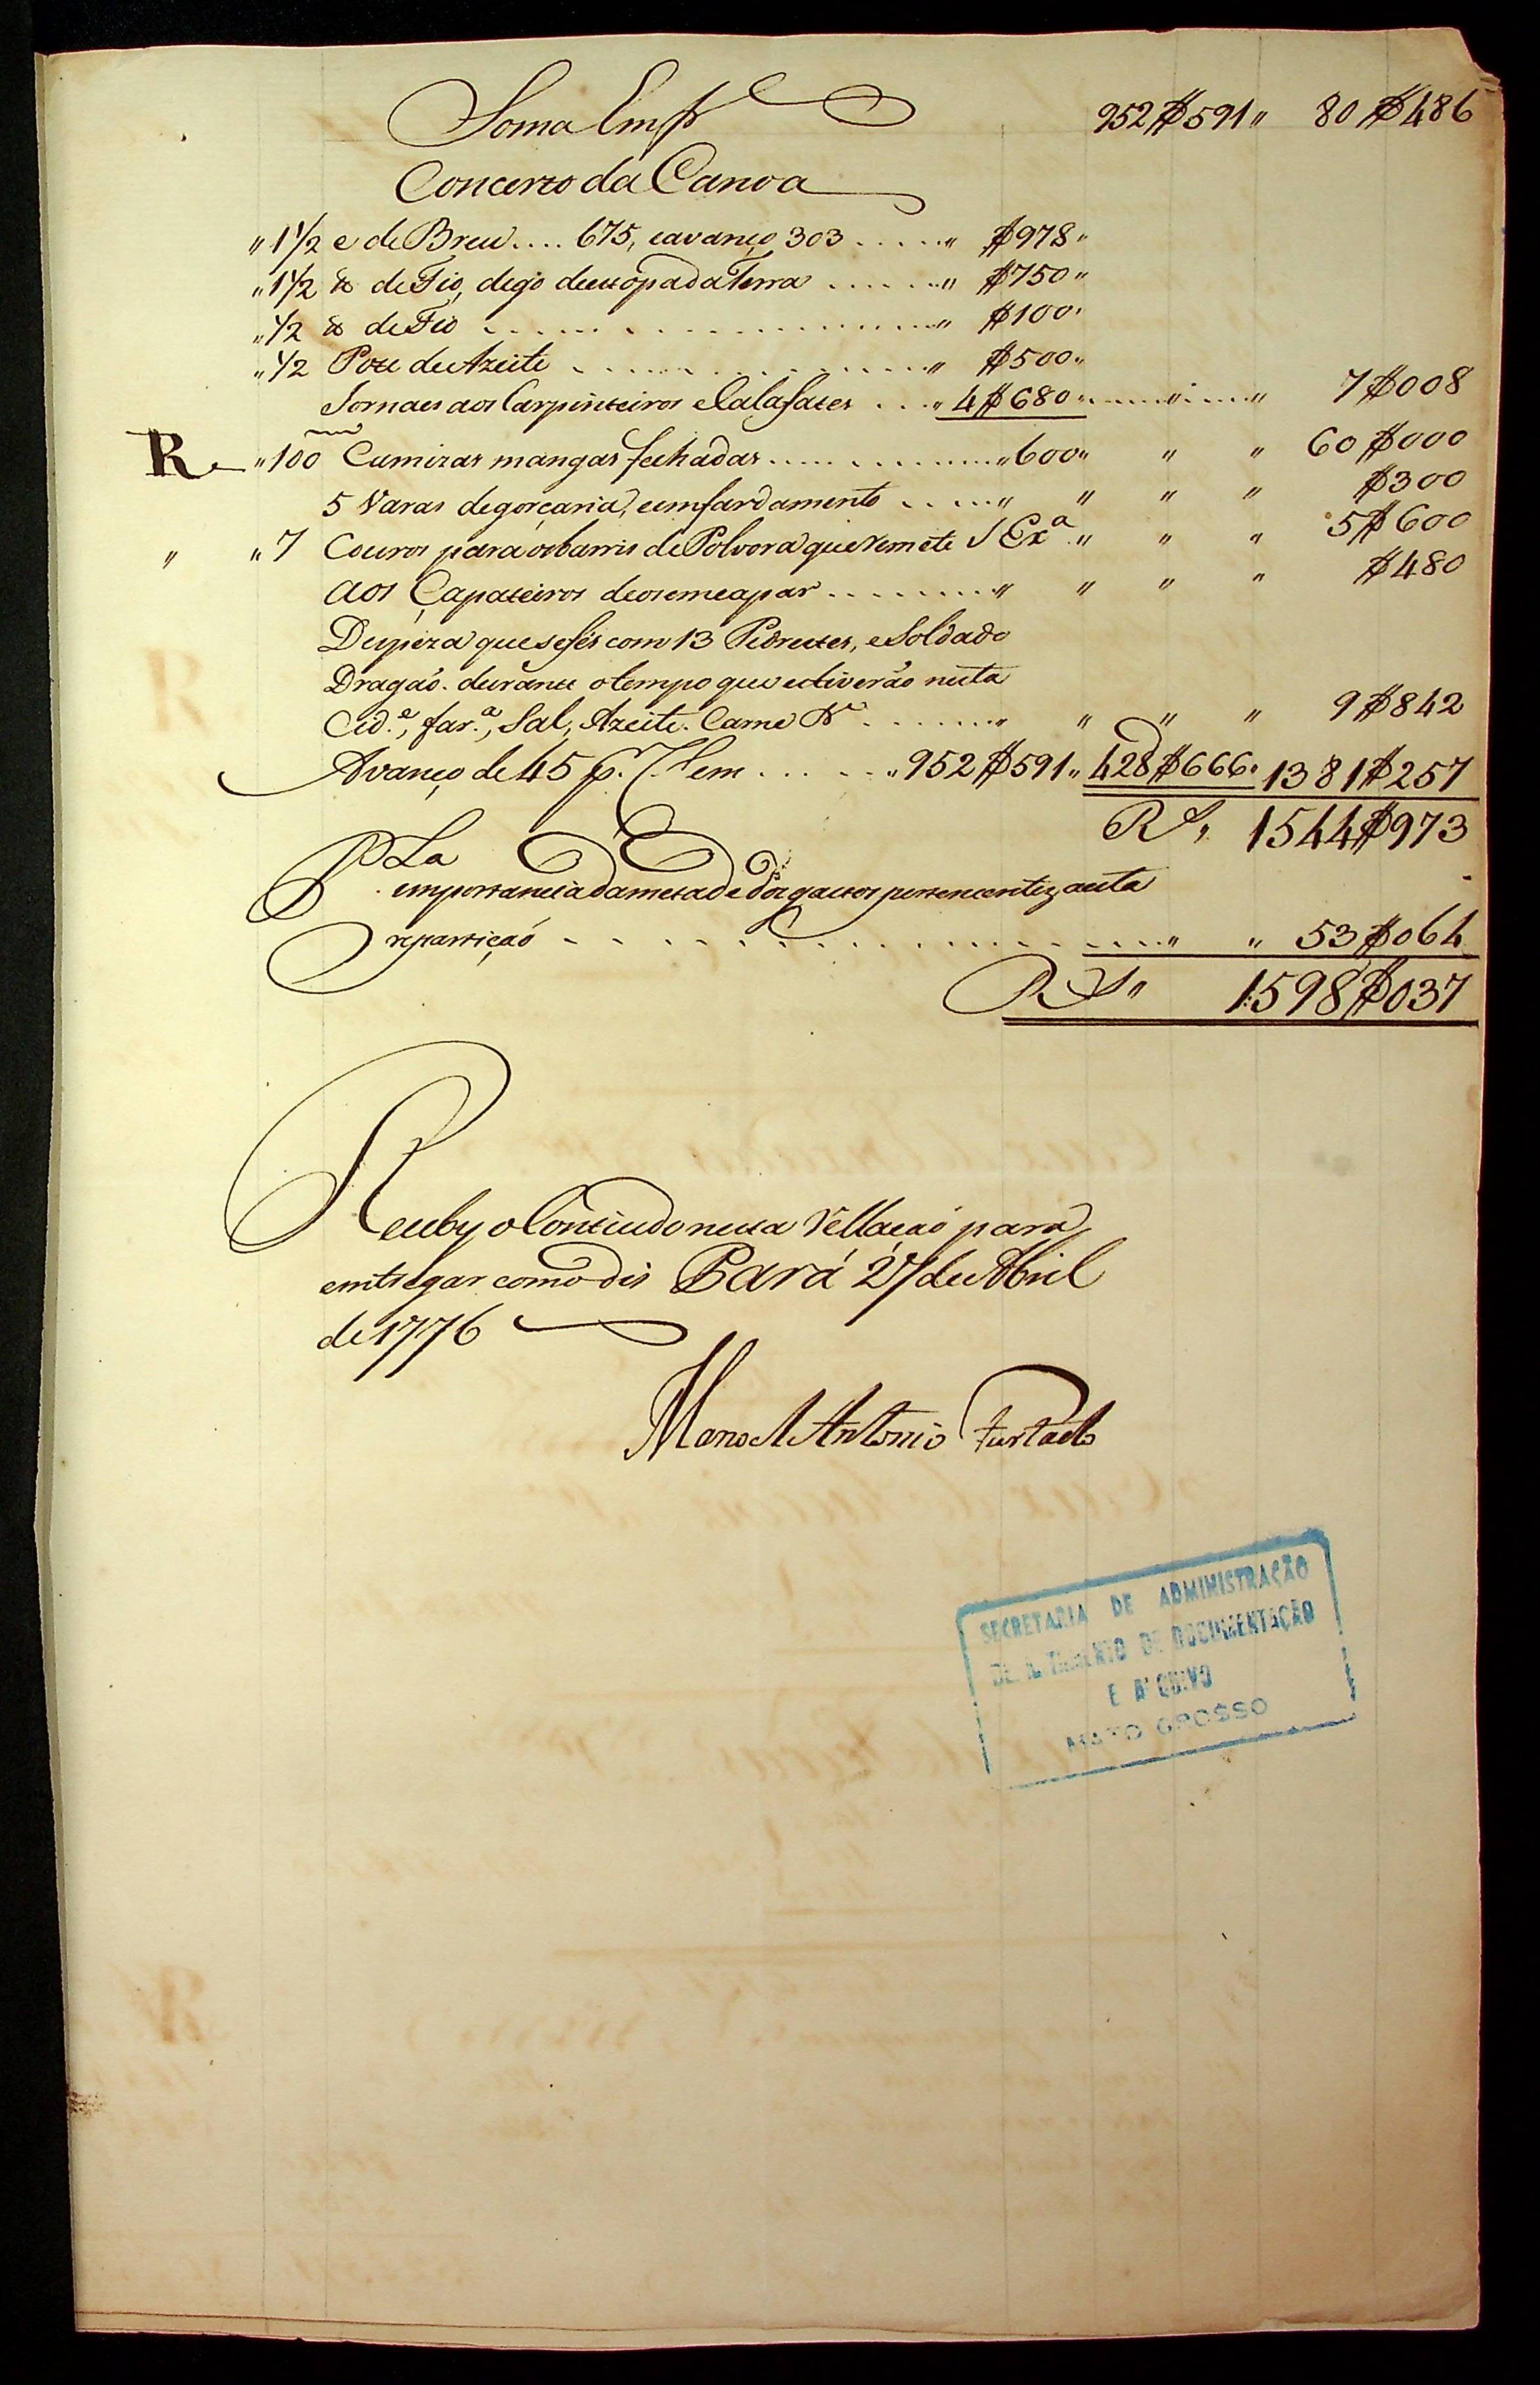 Soma Emfr̃ 952$591 " 80$486
Concerto da Canoa
" 1 1/2 @ de Breu .... 675, eavanço 303 ..... " $978 "
" 1 1/2 ℔ de Fio, digo deestopa da Terra ...... " $750 "
" 1/2 ℔ de Fio ...................... " $100 "
" 1/2 Pote de Azeite ................ " $500 "
Jornaes aos Carpinteiros e Calafates .... " 4$680 " ..... " ..... " 7$008
R " 100 Camizas mangas fechadas ............ " 600 " " " 60$000
5 Varas de gorçaria, eemfardamento ..... " " " " $300
" " 7 Couros para os barris de Polvora que Remete S Exª " " " 5$600
aos Çapateiros deosemcapar ......... " " " " $480
Despeza que sefés com 13 Pedrestes, e Soldado
Dragaõ. durante otempo que estiveraõ nesta
Cid.e, far.ª, Sal, Azeite. Carne &ª ....... " " " " 9$842
Avanço de 45 p. Cem ...... " 952$591 " 428$666 " 1381$257
RS " 1544$973
P La
importancia dametade dosgastos pertencentes aesta
repartiçaõ ...................... " " 53$064
RS " 1598$037
Recebÿ o Conteudo nesta Rellaçaõ para
emtregar como dis Pará 27 de Abril
de 1776
Manoel Antonio Furtado
SECRETARIA DE ADMINISTRAÇÃO
DE DOCUMENTAÇÃO
E ARQUIVO
MATO GROSSO